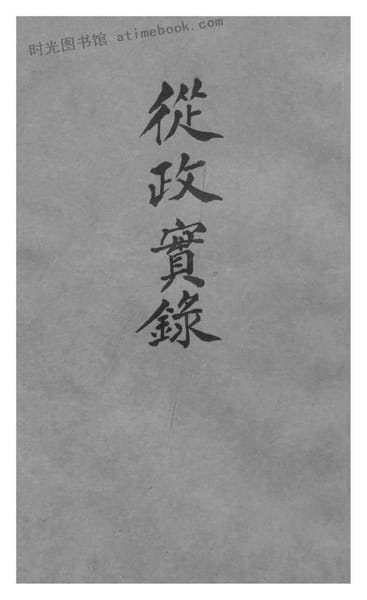 时光图书馆 atimebook.com
從政實錄